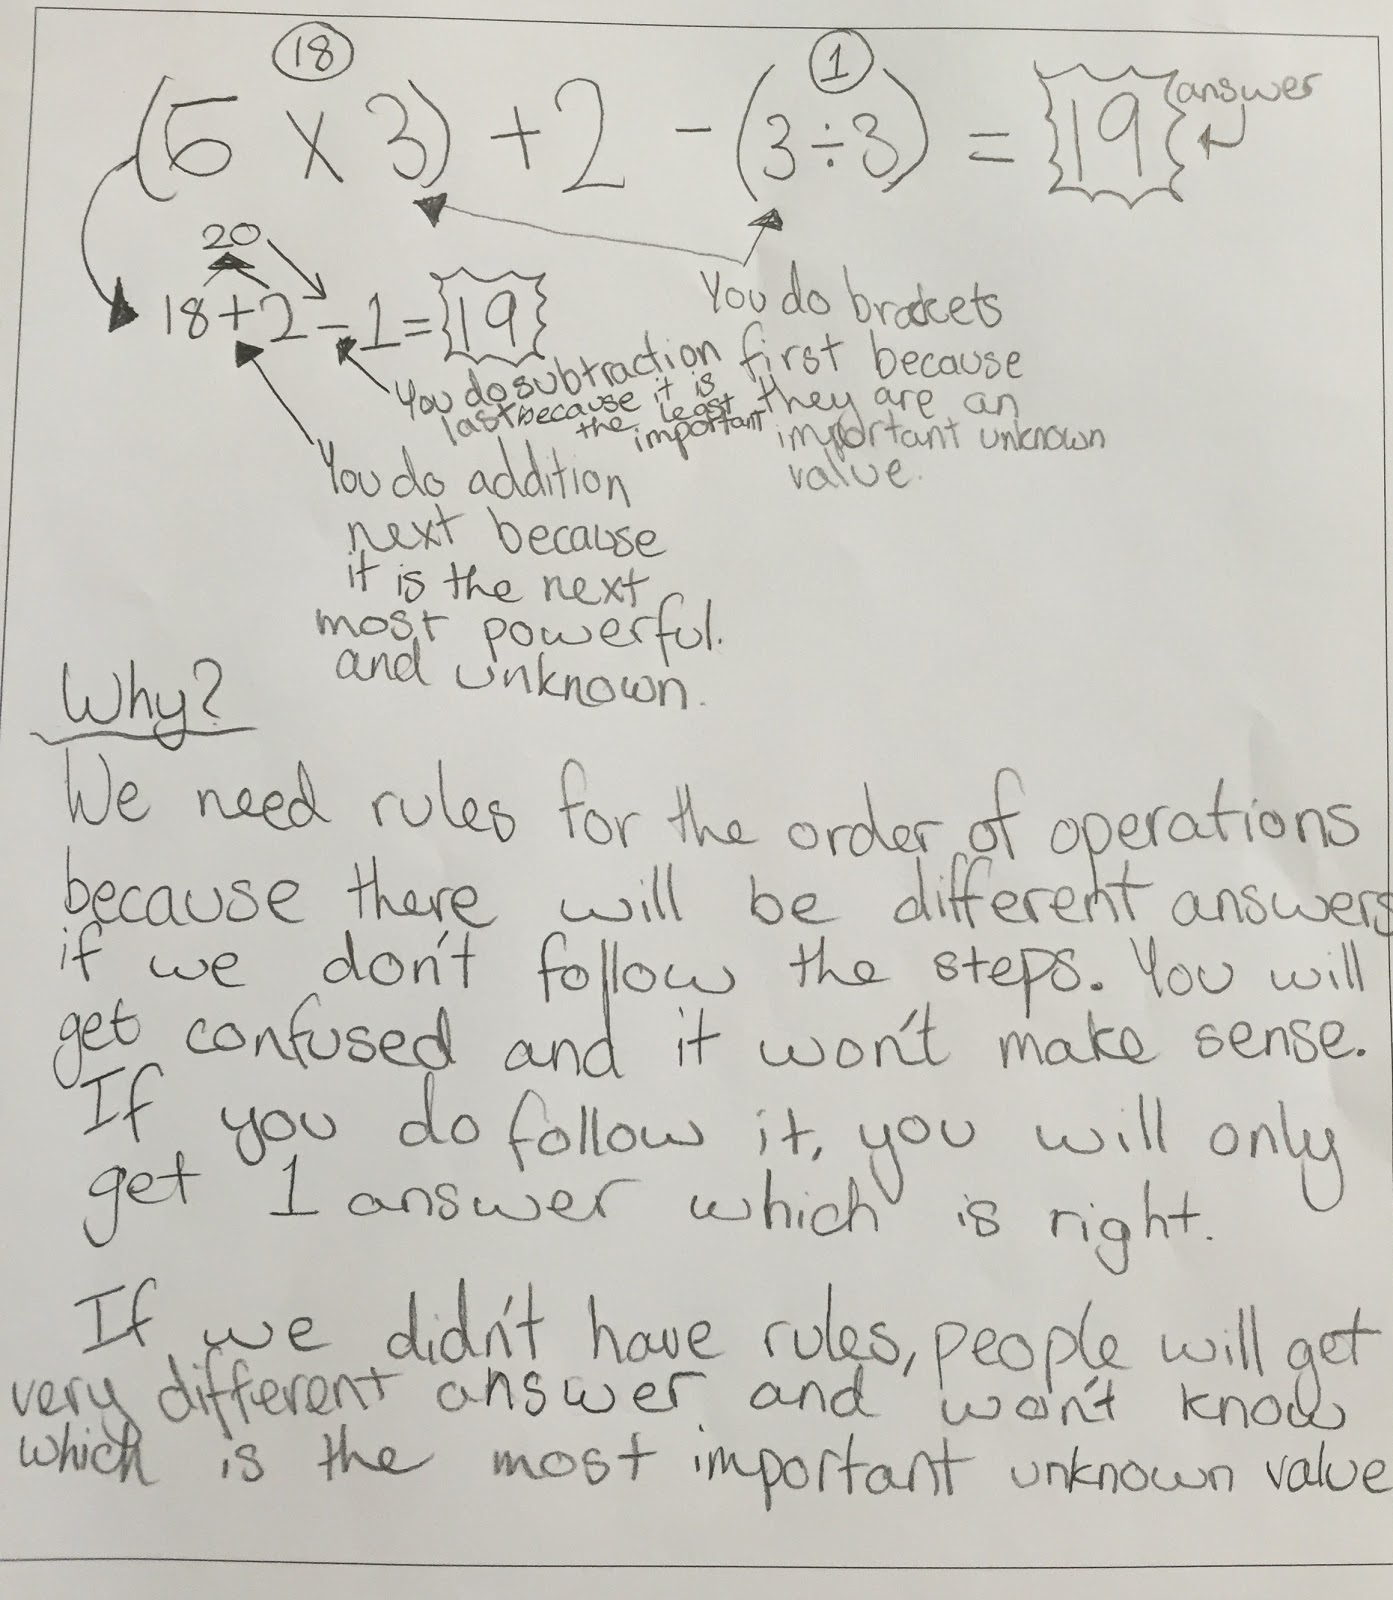 18 1
(6 X 3) + 2 - (3 ÷ 3) = 19 answer
20
18 + 2 - 1 = 19
You do brackets
first because
they are an
important unknown
value.
You do subtraction
last because it is
the least
important
You do addition
next because
it is the next
most powerful.
and unknown.
Why?
We need rules for the order of operations
because there will be different answers
if we don't follow the steps. You will
get confused and it won't make sense.
If you do follow it, you will only
get 1 answer which is right.
If we didn't have rules, people will get
very different answer and won't know
which is the most important unknown value